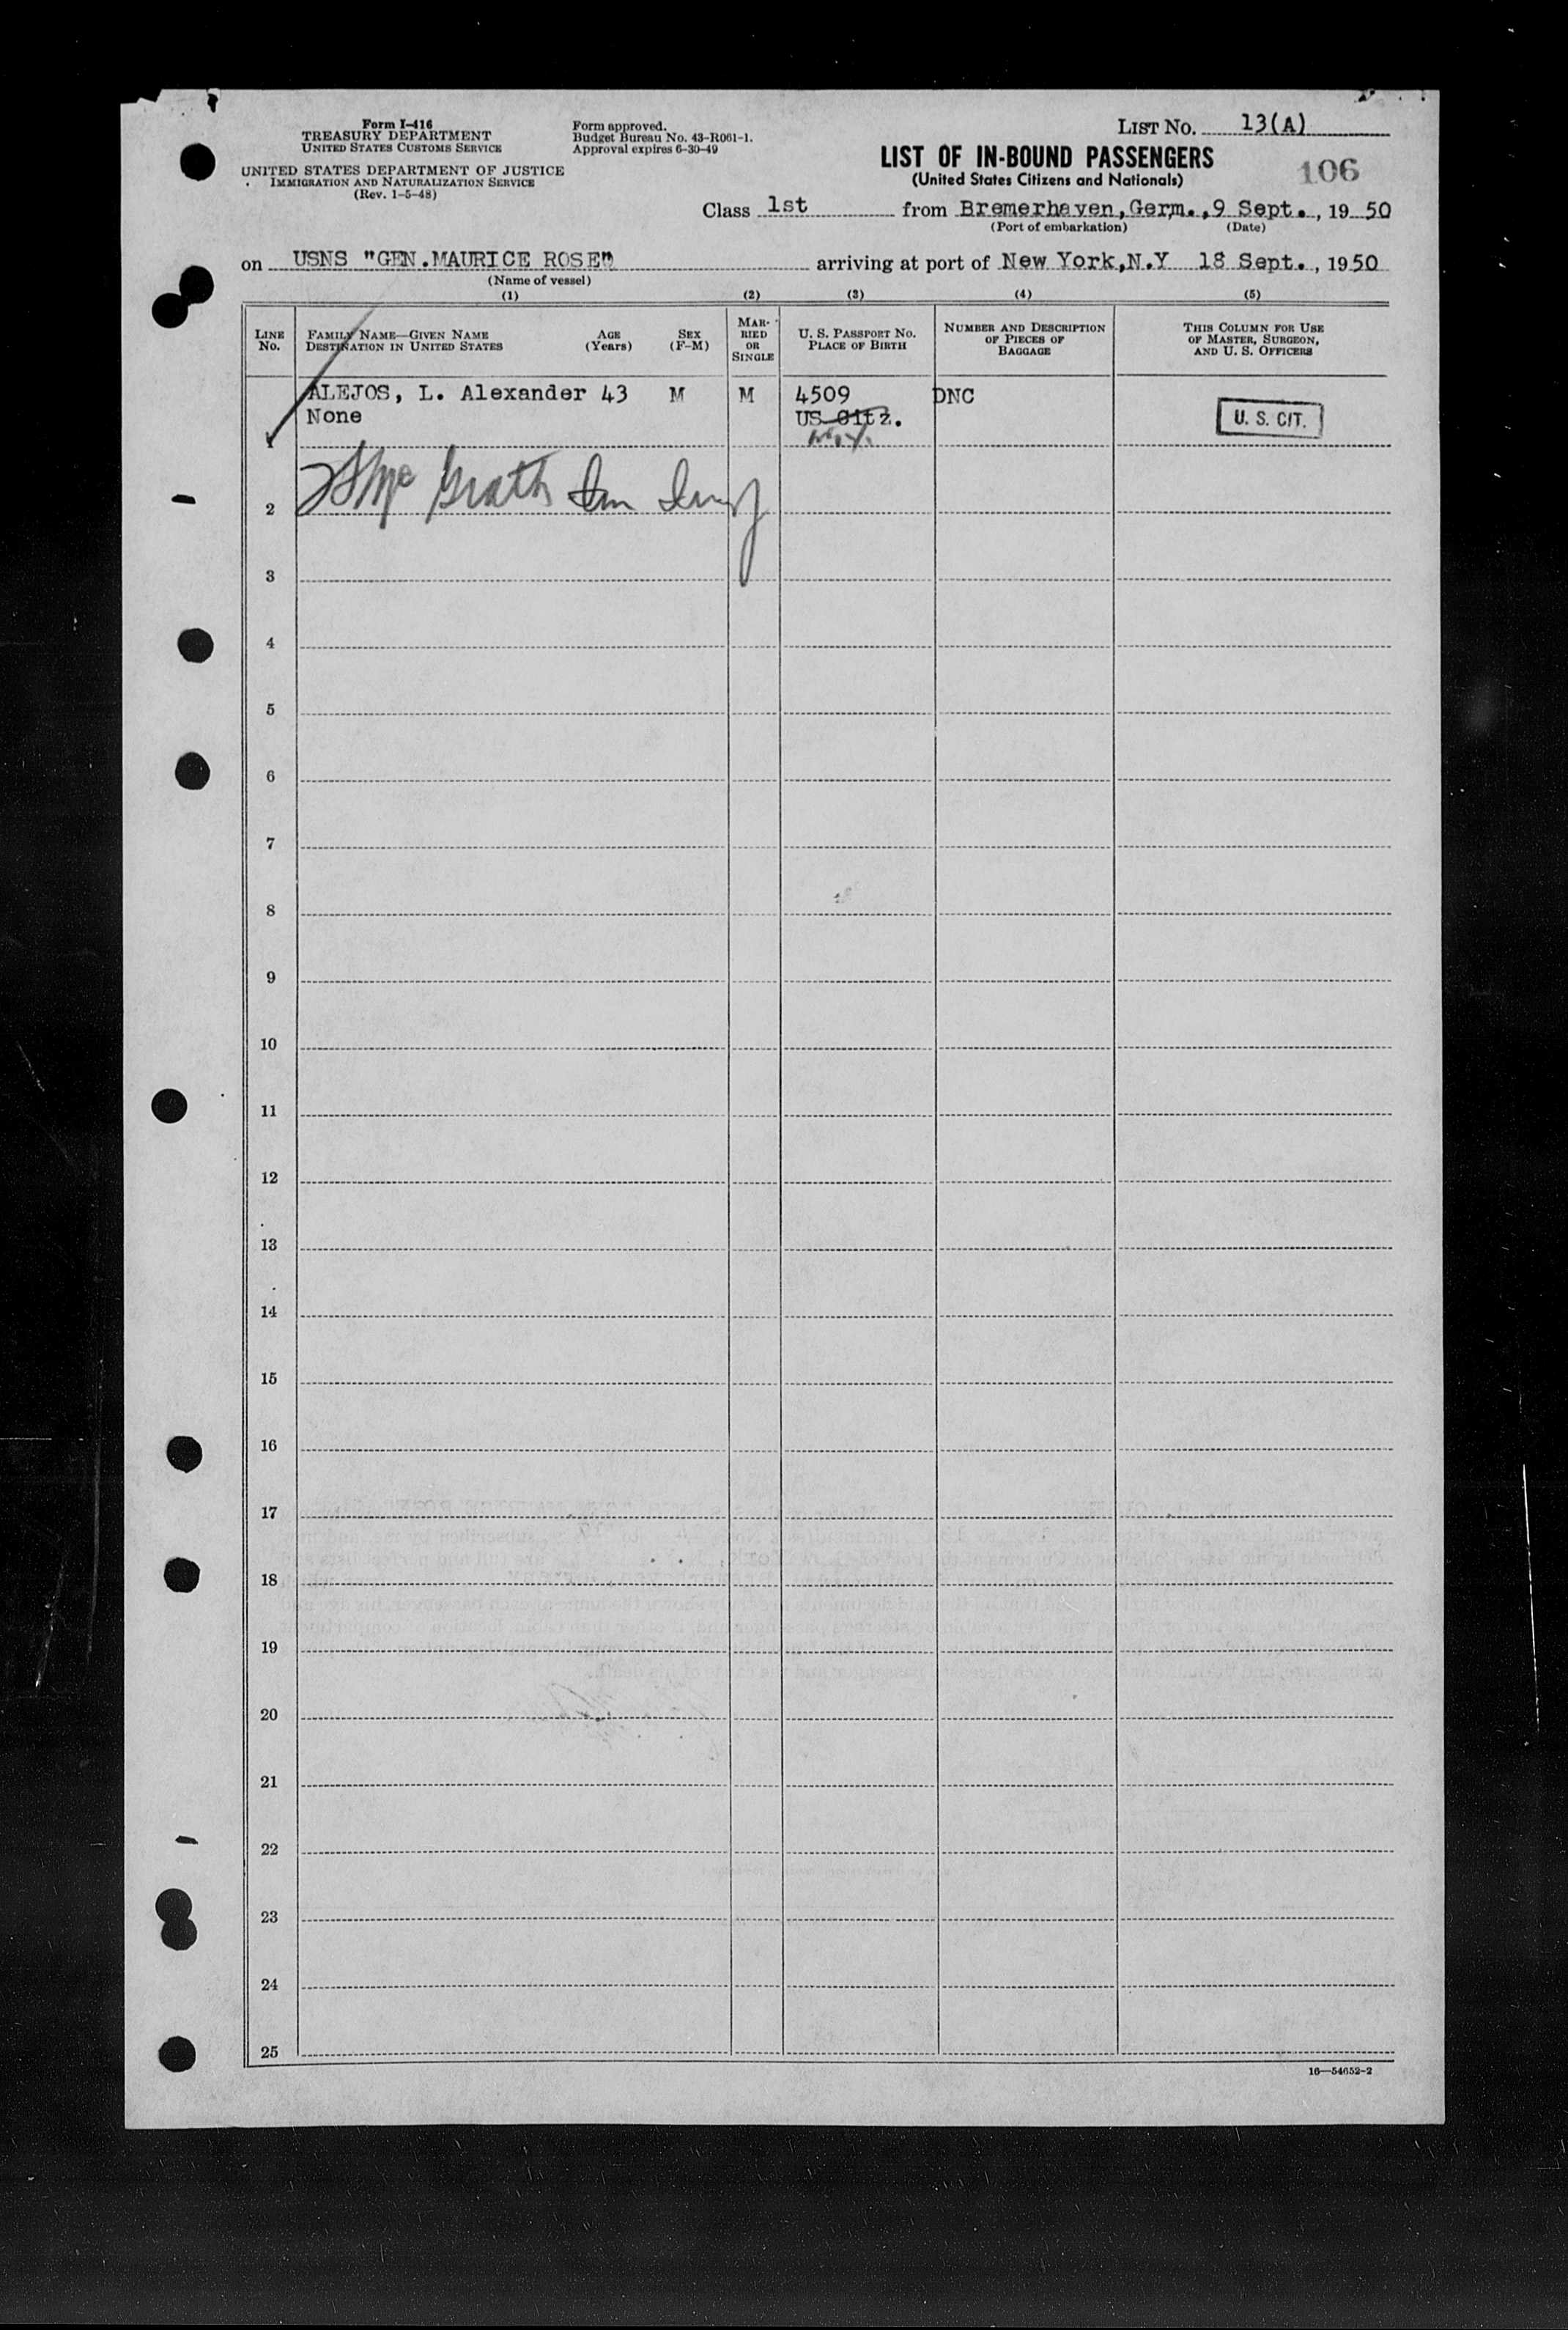 Form I-416
TREASURY DEPARTMENT
UNITED STATES CUSTOMS SERVICE
UNITED STATES DEPARTMENT OF JUSTICE
IMMIGRATION AND NATURALIZATION SERVICE
(Rev. 1-5-48)
Form approved.
Budget Bureau No. 43-R061-1.
Approval expires 6-30-49
LIST No. 13(A)
LIST OF IN-BOUND PASSENGERS
(United States Citizens and Nationals)
106
Class 1st from Bremerhaven,Germ.,9 Sept., 1950
(Port of embarkation) (Date)
on USNS "GEN.MAURICE ROSE" arriving at port of New York,N.Y 18 Sept., 1950
(Name of vessel)
(1) (2) (3) (4) (5)
LINE No. FAMILY NAME—GIVEN NAME DESTINATION IN UNITED STATES AGE (Years) SEX (F-M) MARRIED OR SINGLE U. S. PASSPORT NO. PLACE OF BIRTH NUMBER AND DESCRIPTION OF PIECES OF BAGGAGE THIS COLUMN FOR USE OF MASTER, SURGEON, AND U. S. OFFICERS
ALEJOS, L. Alexander 43 M M 4509 DNC
None US Citz. U. S. CIT.
1
2 McGrath Imm Insp
3
4
5
6
7
8
9
10
11
12
13
14
15
16
17
18
19
20
21
22
23
24
25
16—54652-2